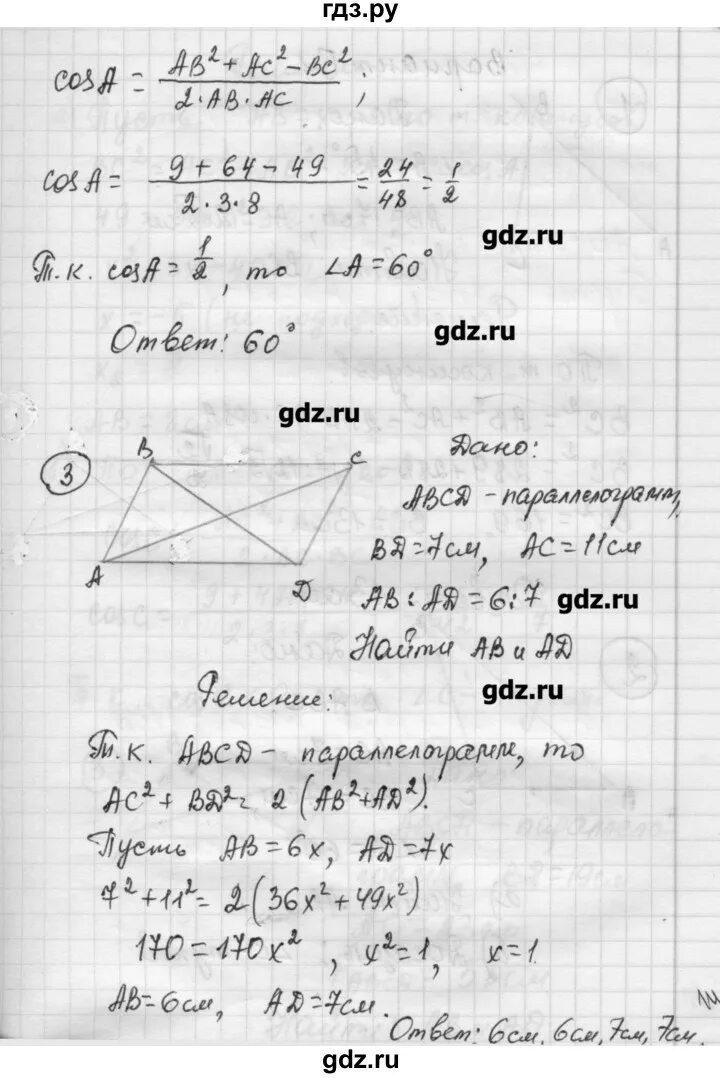 гдз.ру
cosA = AB² + AC² - BC² / 2·AB·AC ;
cosA = 9 + 64 - 49 / 2·3·8 = 24/48 = 1/2
gdz.ru
Т.к. cosA = 1/2, то ∠A = 60°
Ответ: 60°
gdz.ru
gdz.ru
3
B C
A D
Дано:
ABCD - параллелограмм,
BD = 7см, AC = 11см
AB : AD = 6:7
gdz.ru
Найти AB и AD
gdz.ru
Решение:
Т.к. ABCD - параллелограмм, то
AC² + BD² = 2(AB² + AD²).
Пусть AB = 6x, AD = 7x
7² + 11² = 2(36x² + 49x²)
170 = 170x², x² = 1, x = 1.
AB = 6см, AD = 7см.
Ответ: 6см, 6см, 7см, 7см.
gdz.ru